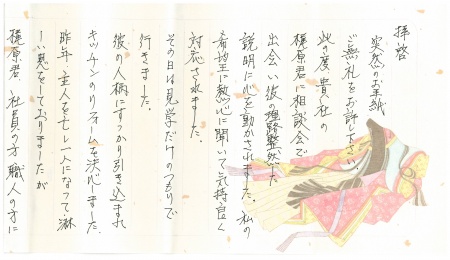 拝啓
突然のお手紙
ご無礼をお許し下さい。
此の度貴社の
梶原君に相談会で
出会い彼の理路整然とした
説明に心を動かされました。私の
希望を熱心に聞いて気持良く
対応されました。
その日は見学だけのつもりで
行きました。
彼の人柄にすっかり引き込まれ
キッチンのリフォームを決心しました。
昨年主人を亡し一人になって淋
しい思をしておりましたが
梶原君、社員の方職人の方に